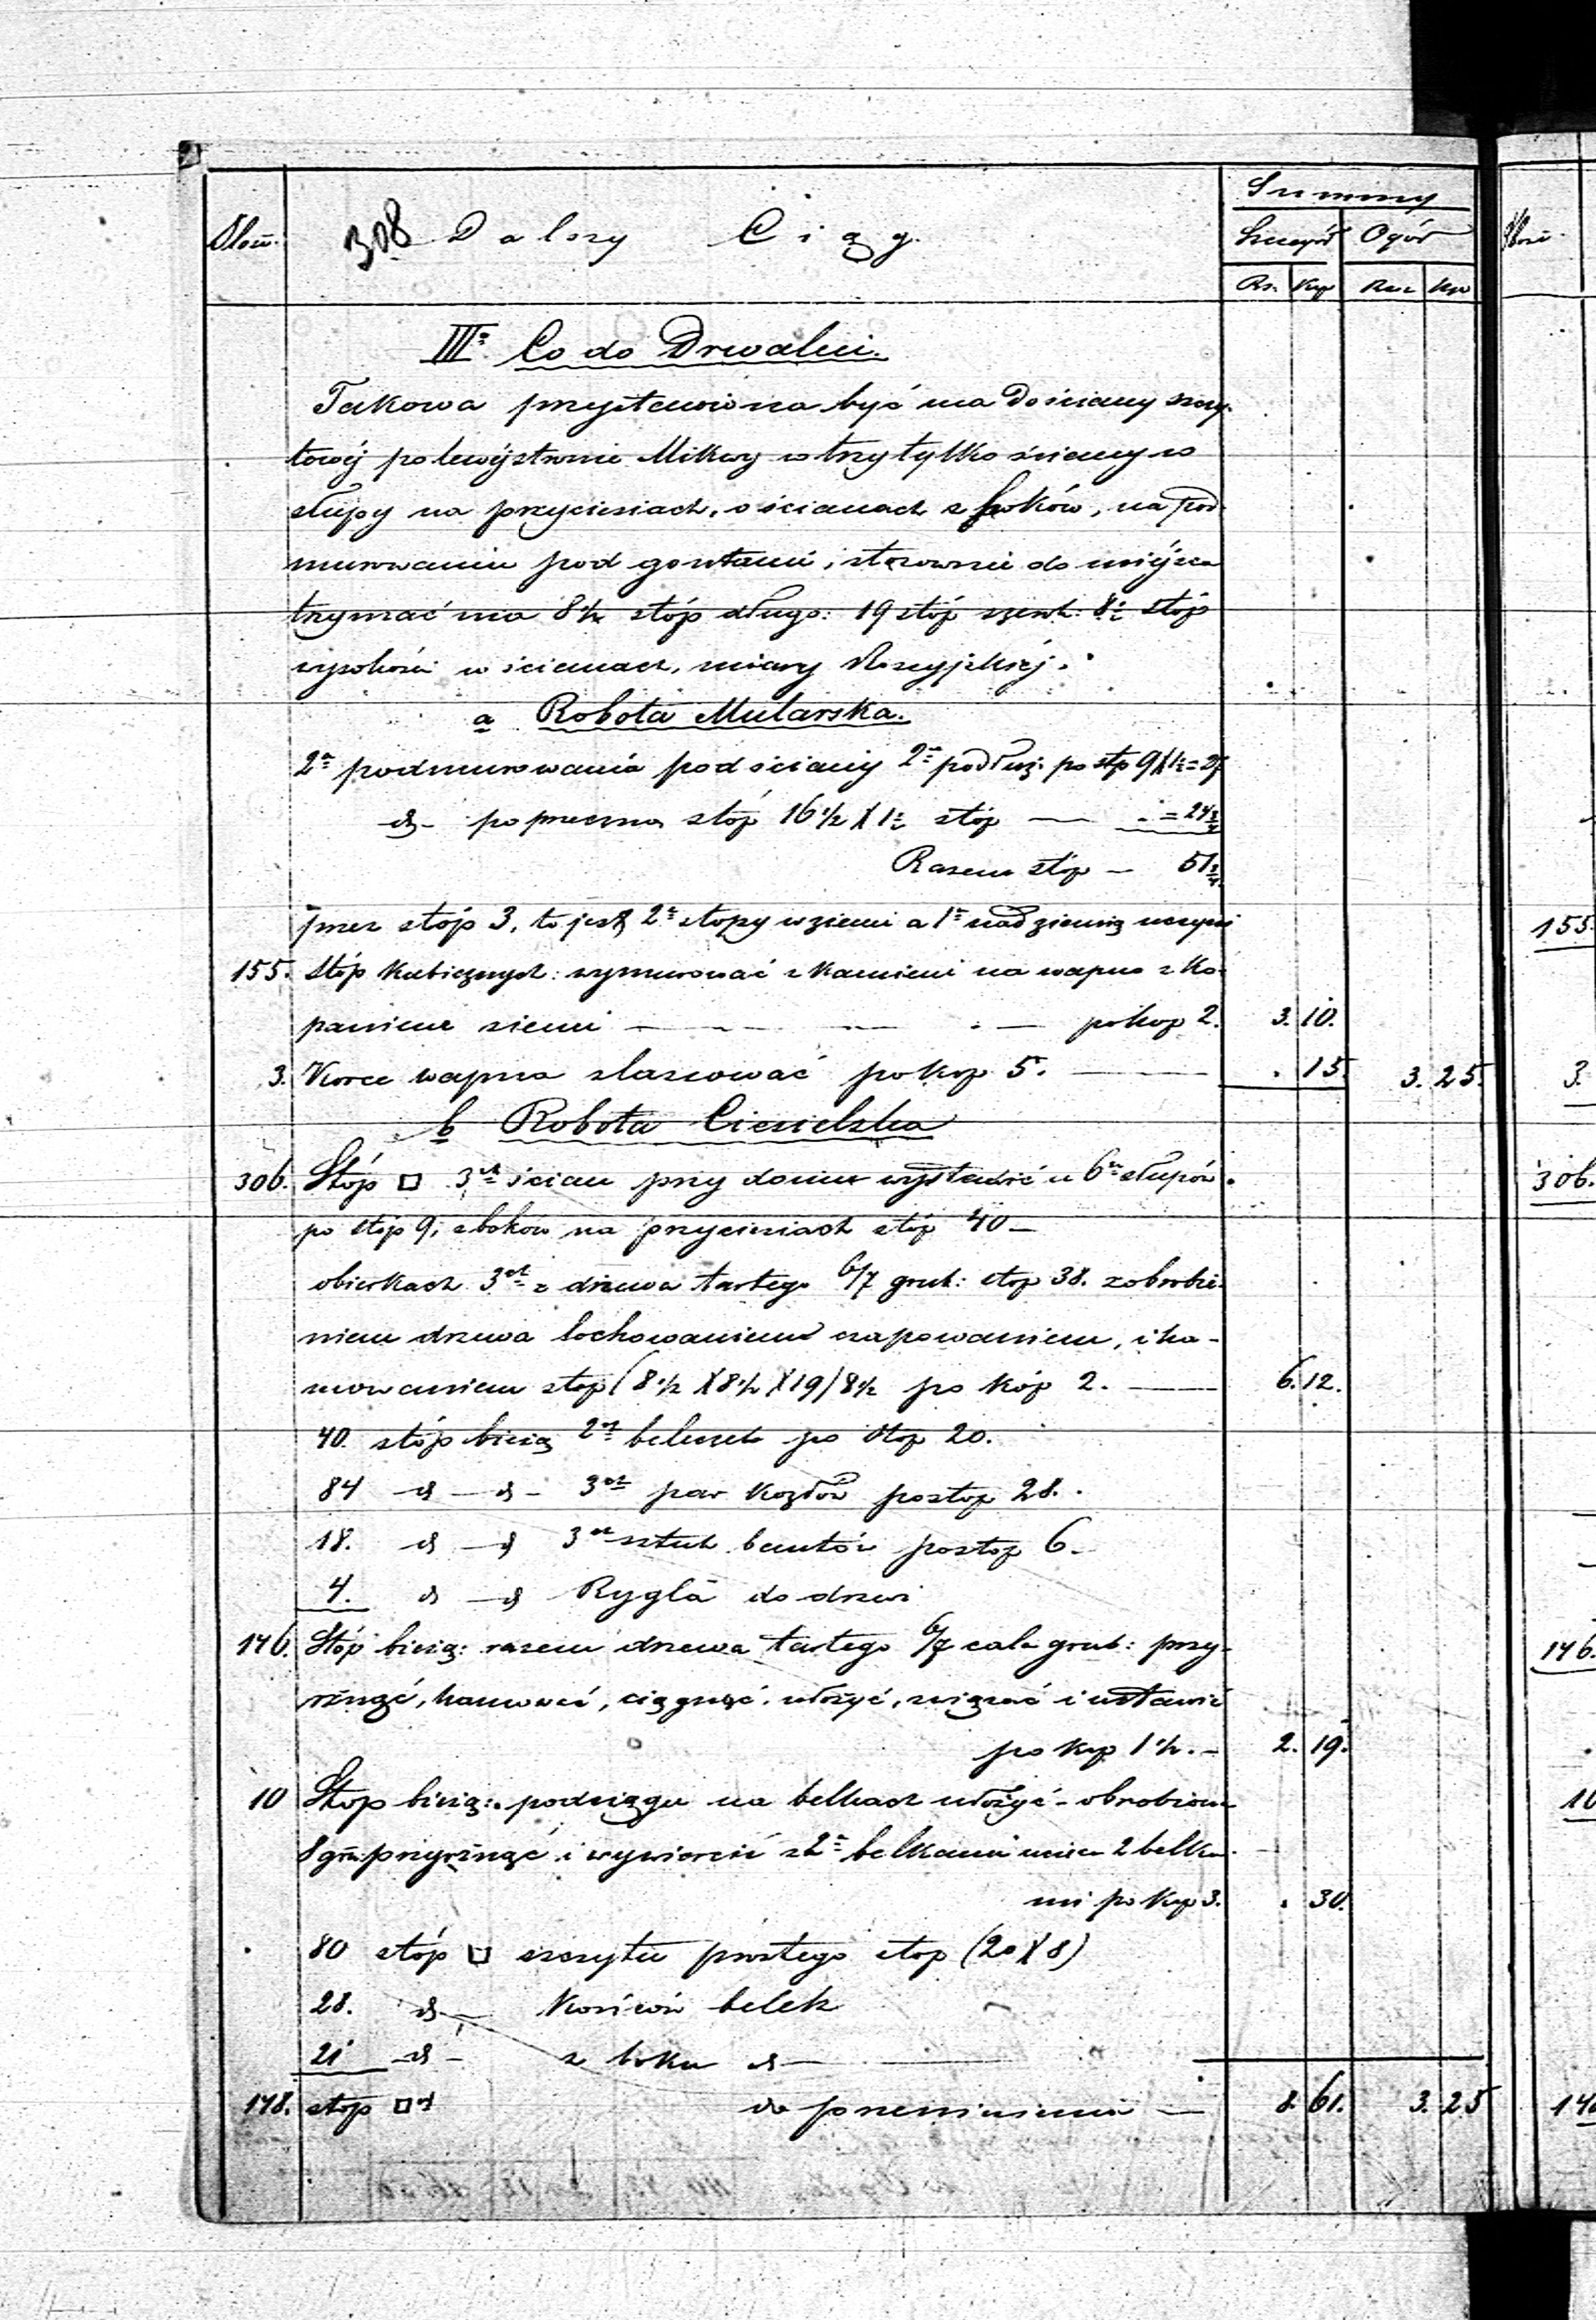 Summy
Ilość 308 Dalszy Ciąg. Szczegół Ogół
Rs. Kop Rsr Kop
III° Co do Drwalni.
Takowa przystawiona być ma do ściany szczy-
towéj po lewéj stronie Mikwy w trzy tylko ściany w
słupy na przyciesiach, o ścianach z boków, na pod
murowaniu pod gontami, stosownie do miéjsca
trzymać ma 8 1/2 stóp długo: 19 stóp szerok: 8 1/2 stóp
wysokości w ścianach, miary Rossyjskiéj.
a Robota Mularska.
2a podmurowania pod ściany 2a podłuż: po stóp 9 X 1 1/2 = 27
d- poprzeczna stóp 16 1/2 X 1 1/2 stóp — = 24 3/4
Razem stóp — 51 3/4
przez stóp 3, to jest 2a stopy w ziemi a 1a nad ziemią uczyni
155. stóp kubicznych: wymurować z kamieni na wapno z ko-
paniem ziemi — po kop 2. 3. 10.
3. Korce wapna zlasować po kop. 5. — . 15. 3. 25.
b Robota Ciesielska
306. Stóp □ 3ch ścian przy domu wystawić w 6u słupów
po stóp 9, z boków na przyciesiach stóp 40 —
3ch z drzewa tartego 6/7 grub: stóp 38. z obrobie-
niem drzewa czapowaniem, i ha-
mowaniem stóp (8 1/2 X 8 1/2 X 19) 8 1/2 po kóp 2. — 6. 12.
40. stóp bieżą 2ch beleczek po stóp 20.
84 d — d - 3ch par kozłów po stóp 28.
18. d — d 3ch sztuk bantów po stóp 6.
4. d — d Rygla do drzwi
146. Stóp bieżą: razem drzewa tartego 6/7 cala grub: przy-
rznąć, hamować, ciągnąć, ułożyć, związać i ustawić
po kop 1 1/2. - 2. 19.
10 Stop bieżą: podciągu na belkach ułożyć - obrobione
przyrznąć i wywiercić z 2a belkami 2 belka-
mi po kop 3. . 30.
80 stóp □ szczytu prostego stop (20 X 8)
28. d — Końców belek
21 d - z boku d —
148. stóp □ch do przeniesienia — 8. 61. 3. 25